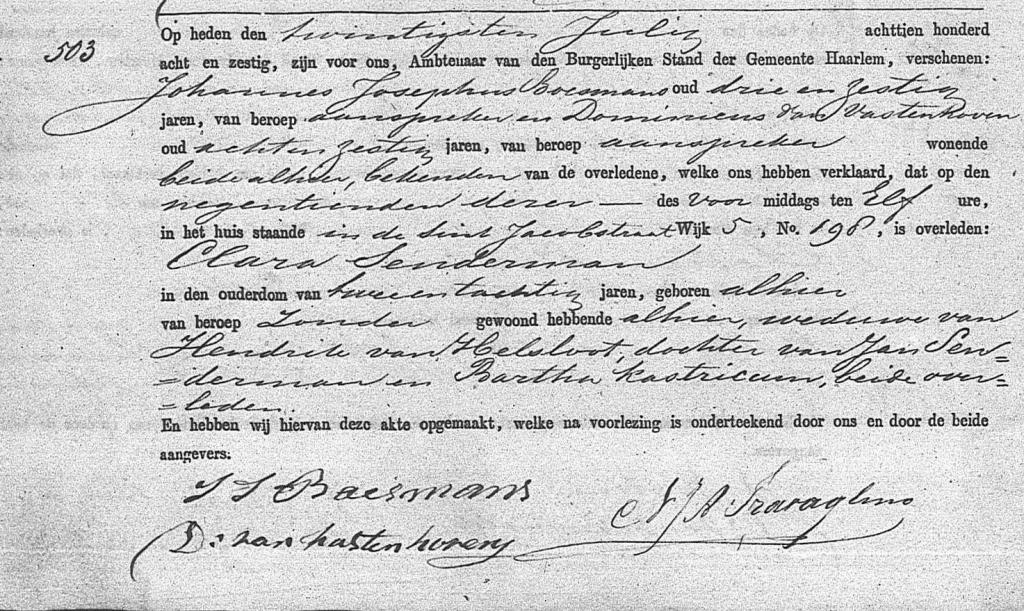 503
Op heden den twintigsten Julij achttien honderd
acht en zestig, zijn voor ons, Ambtenaar van den Burgerlijken Stand der Gemeente Haarlem, verschenen:
Johannes Josephus Boesmans oud drie en zestig
jaren, van beroep aanspreker en Dominicus van Vastenhoven
oud acht en zestig jaren, van beroep aanspreker wonende
beide alhier, bekenden van de overledene, welke ons hebben verklaard, dat op den
negentienden dezer — des voor middags ten Elf ure,
in het huis staande in de Sint Jacobstraat Wijk 5, No. 198, is overleden:
Clara Senderman
in den ouderdom van twee en tachtig jaren, geboren alhier
van beroep Zonder gewoond hebbende alhier, weduwe van
Hendrik van Helsloot, dochter van Jan Sen=
=derman en Bartha Kastricum, beide over=
=leden.
En hebben wij hiervan deze akte opgemaakt, welke na voorlezing is onderteekend door ons en door de beide
aangevers.
J J Boesmans
D. van Vastenhoven
N J A Travaglino